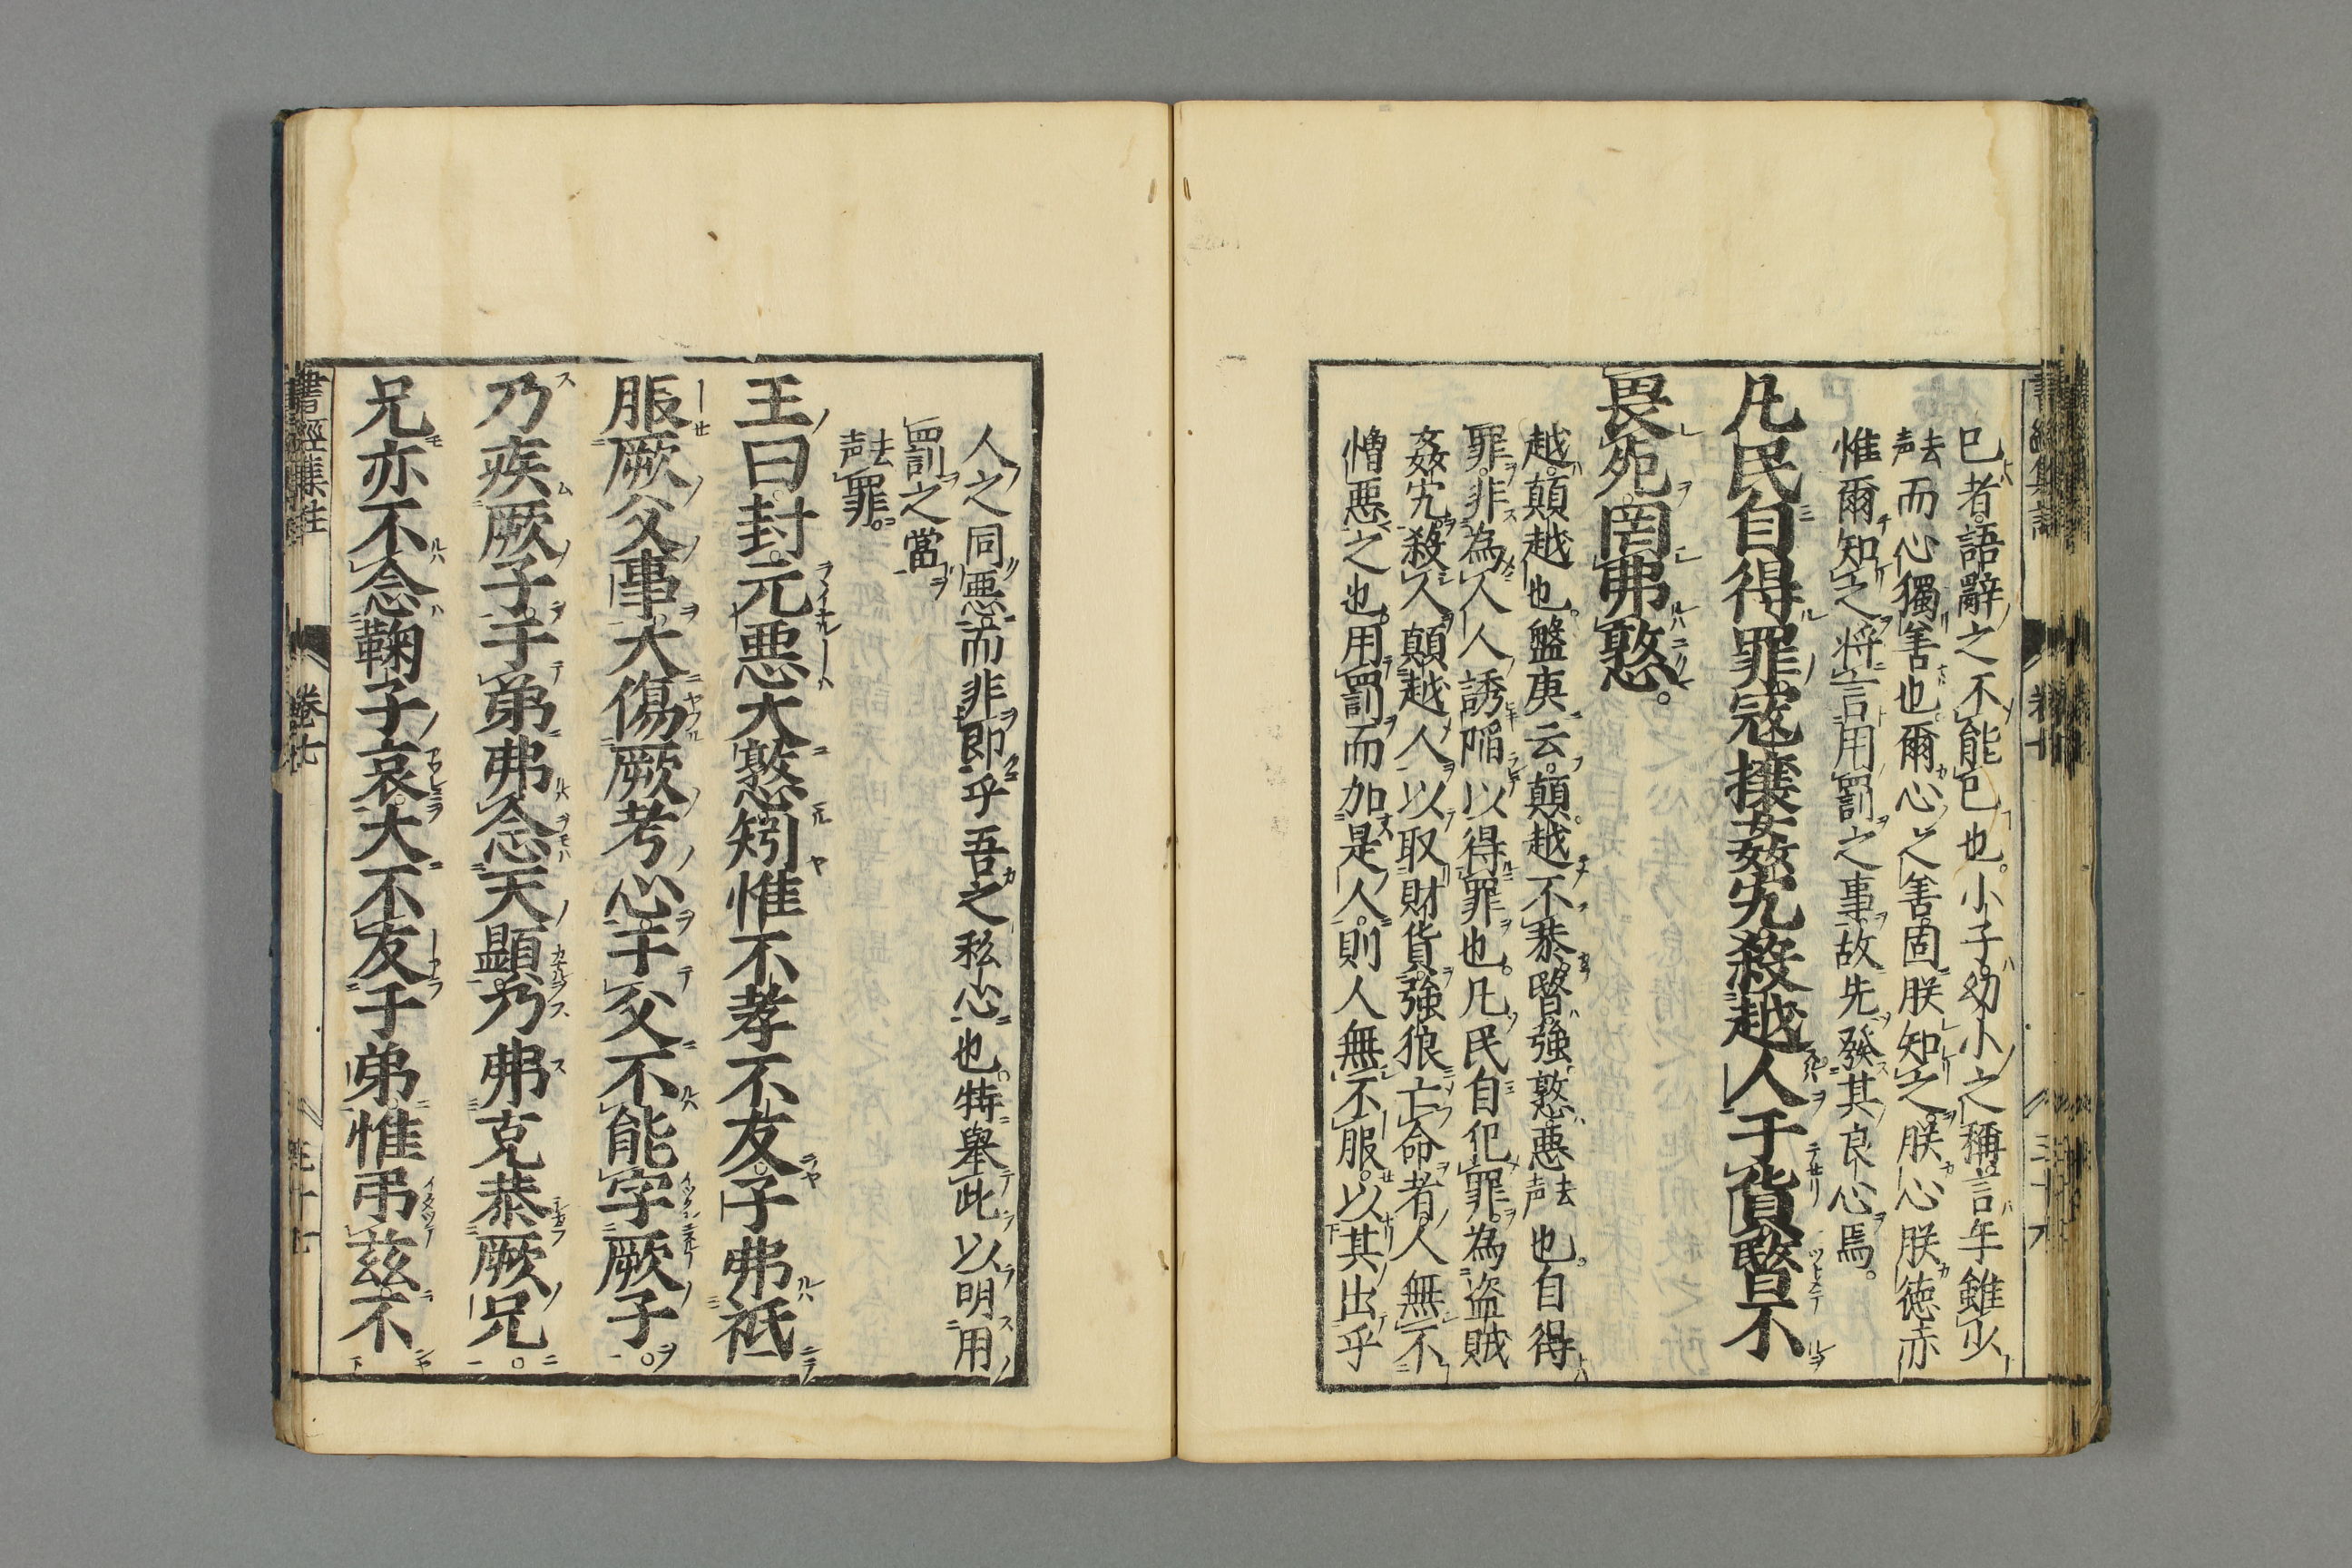 巳者語辭之不能巳也。小子幼小之稱言年雖少
去声而心獨善也爾心之善固朕知之朕心朕徳亦
惟爾知之將言用罰之事故先發其良心焉。
凡民自得罪寇攘姦宄殺越人于貨暋不
畏死罔弗憝。
越顛越也。盤庚云顛越不恭暋強憝悪去声也。自得
罪非為人人誘陥以得罪也。凡民自犯罪為盗賊
姦宄殺人顛越人以取財貨強狠亡命者人無不
憎悪之也用罰而加是人則人無不服以其出乎
人之同悪而非即乎吾之私心也。特舉此以明用
罰之當
去声罪。
王曰封元悪大憝矧惟不孝不友子弗祗
服厥父事大傷厥考心于父不能字厥子
乃疾厥子于弟弗念天顕乃弗克恭厥兄
兄亦不念鞠子哀大不友于弟惟弔茲不
書經集註 卷七